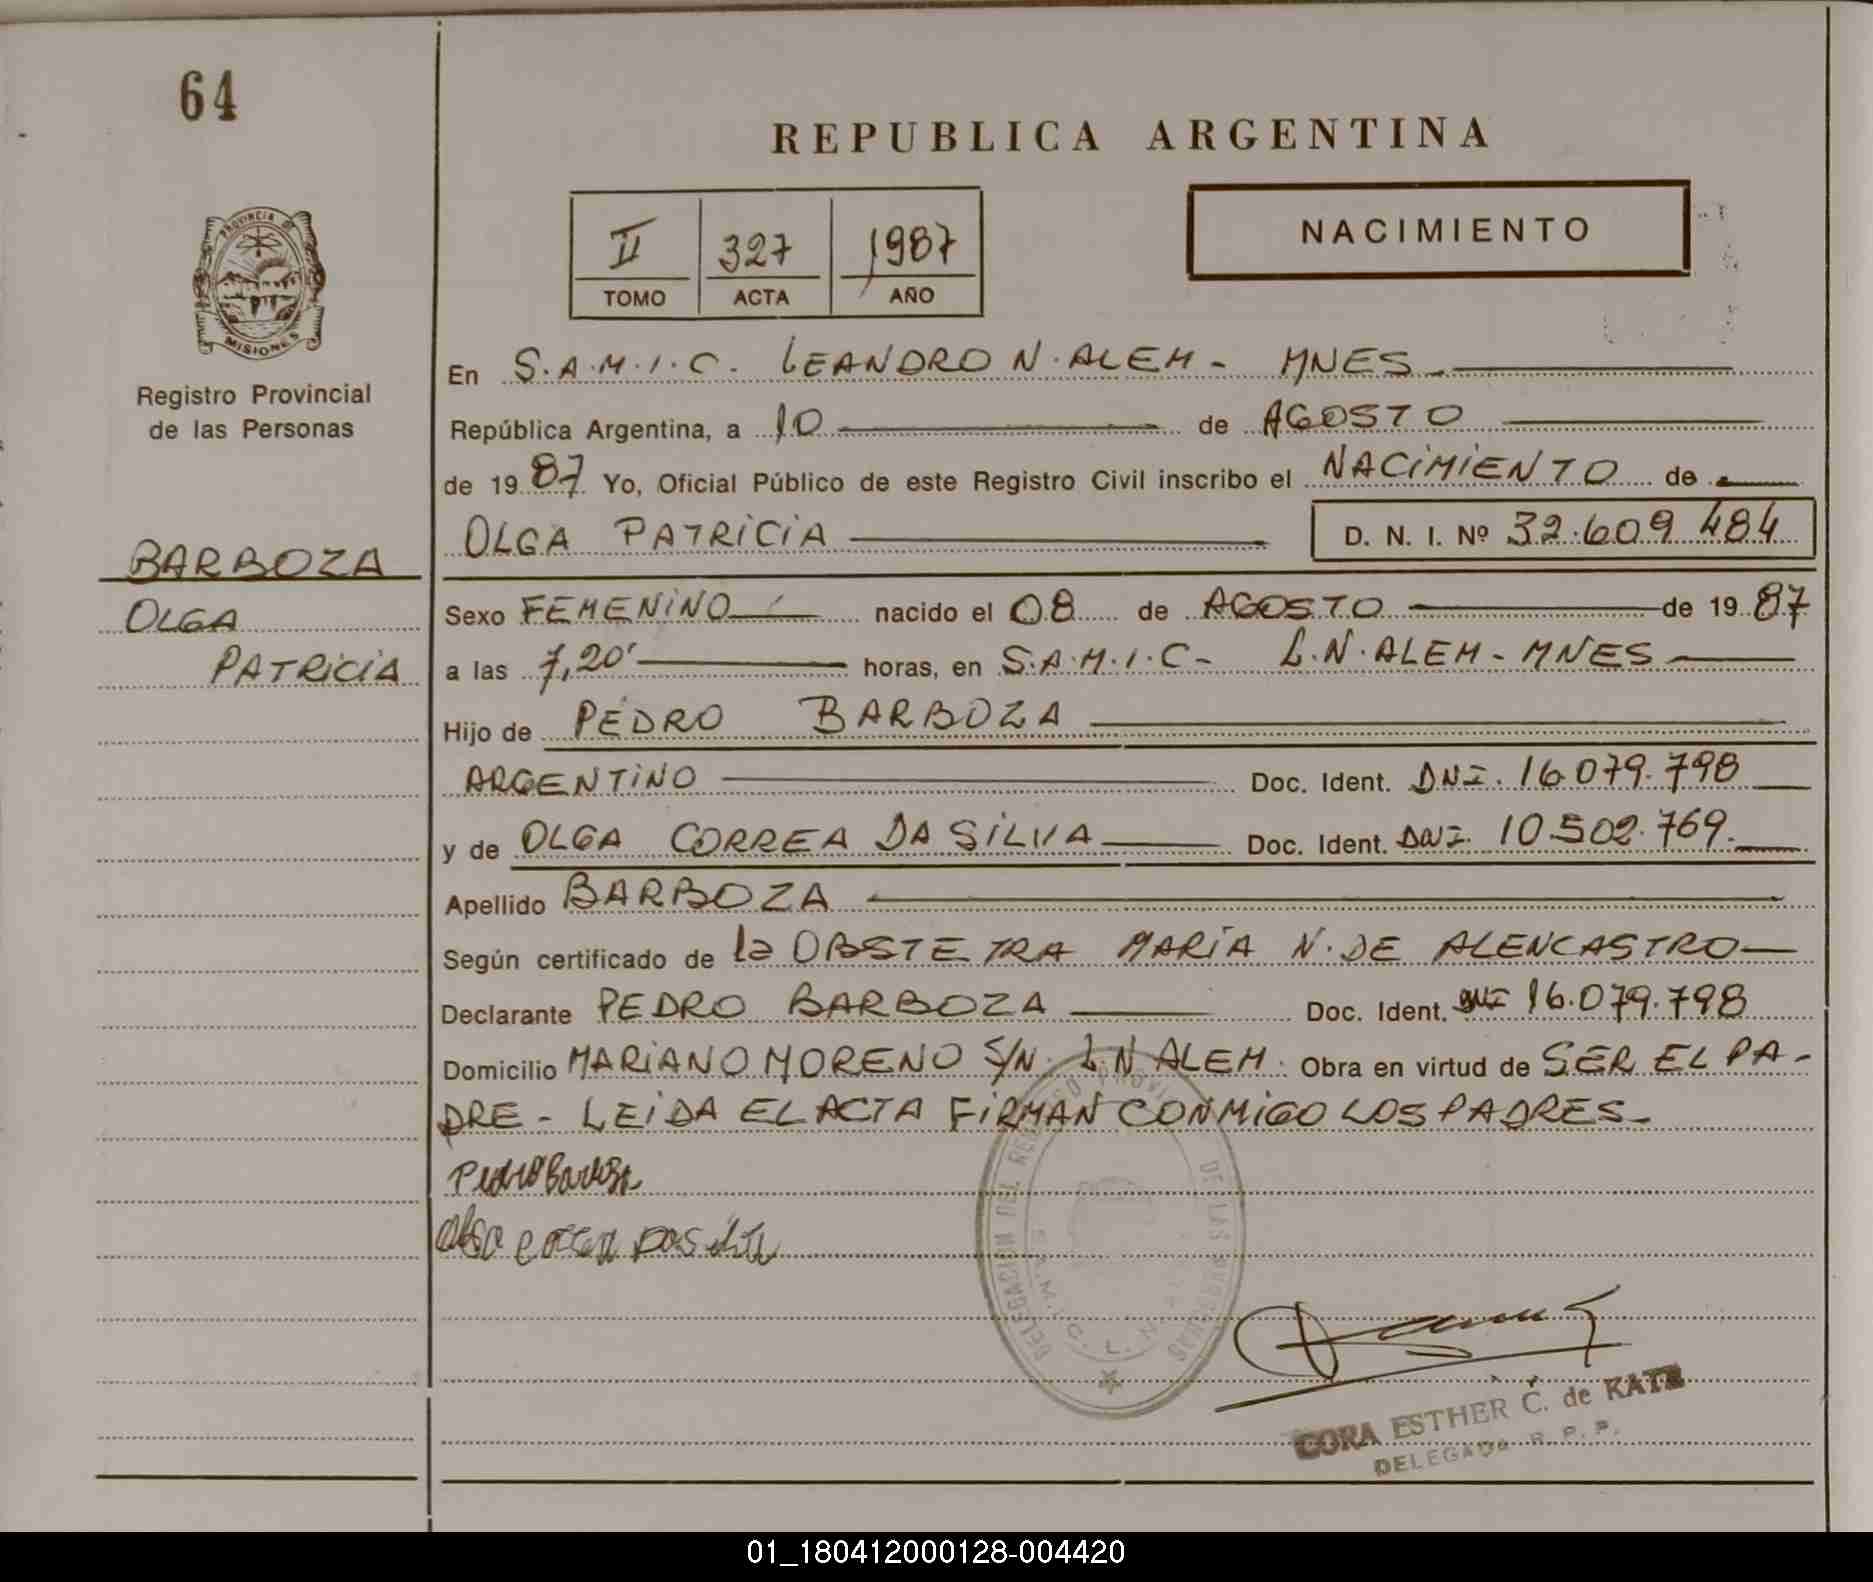 64
REPUBLICA ARGENTINA
NACIMIENTO
II 327 1987
TOMO ACTA AÑO
PROVINCIA DE
MISIONES
Registro Provincial
de las Personas
BARBOZA
OLGA
PATRICIA
En S.A.M.I.C. LEANDRO N. ALEM - MNES
República Argentina, a 10 de AGOSTO
de 1987 Yo, Oficial Público de este Registro Civil inscribo el NACIMIENTO de
OLGA PATRICIA D. N. I. Nº 32.609.484
Sexo FEMENINO nacido el 08 de AGOSTO de 1987
a las 7,20' horas, en S.A.M.I.C - L.N. ALEM - MNES
Hijo de PEDRO BARBOZA
ARGENTINO Doc. Ident. DNI. 16.079.798
y de OLGA CORREA DA SILVA Doc. Ident. DNI 10.502.769.
Apellido BARBOZA
Según certificado de la OBSTETRA MARÍA N. DE ALENCASTRO
Declarante PEDRO BARBOZA Doc. Ident. DNI 16.079.798
Domicilio MARIANO MORENO S/N. L.N ALEM. Obra en virtud de SER EL PA-
DRE - LEIDA EL ACTA FIRMAN CONMIGO LOS PADRES-
Pedro Barboza
DELEGACION DEL REGISTRO PROVINCIAL DE LAS PERSONAS
S.A.M.I.C. L. N.
CORA ESTHER C. de KATZ
DELEGADA R. P. P.
01_180412000128-004420